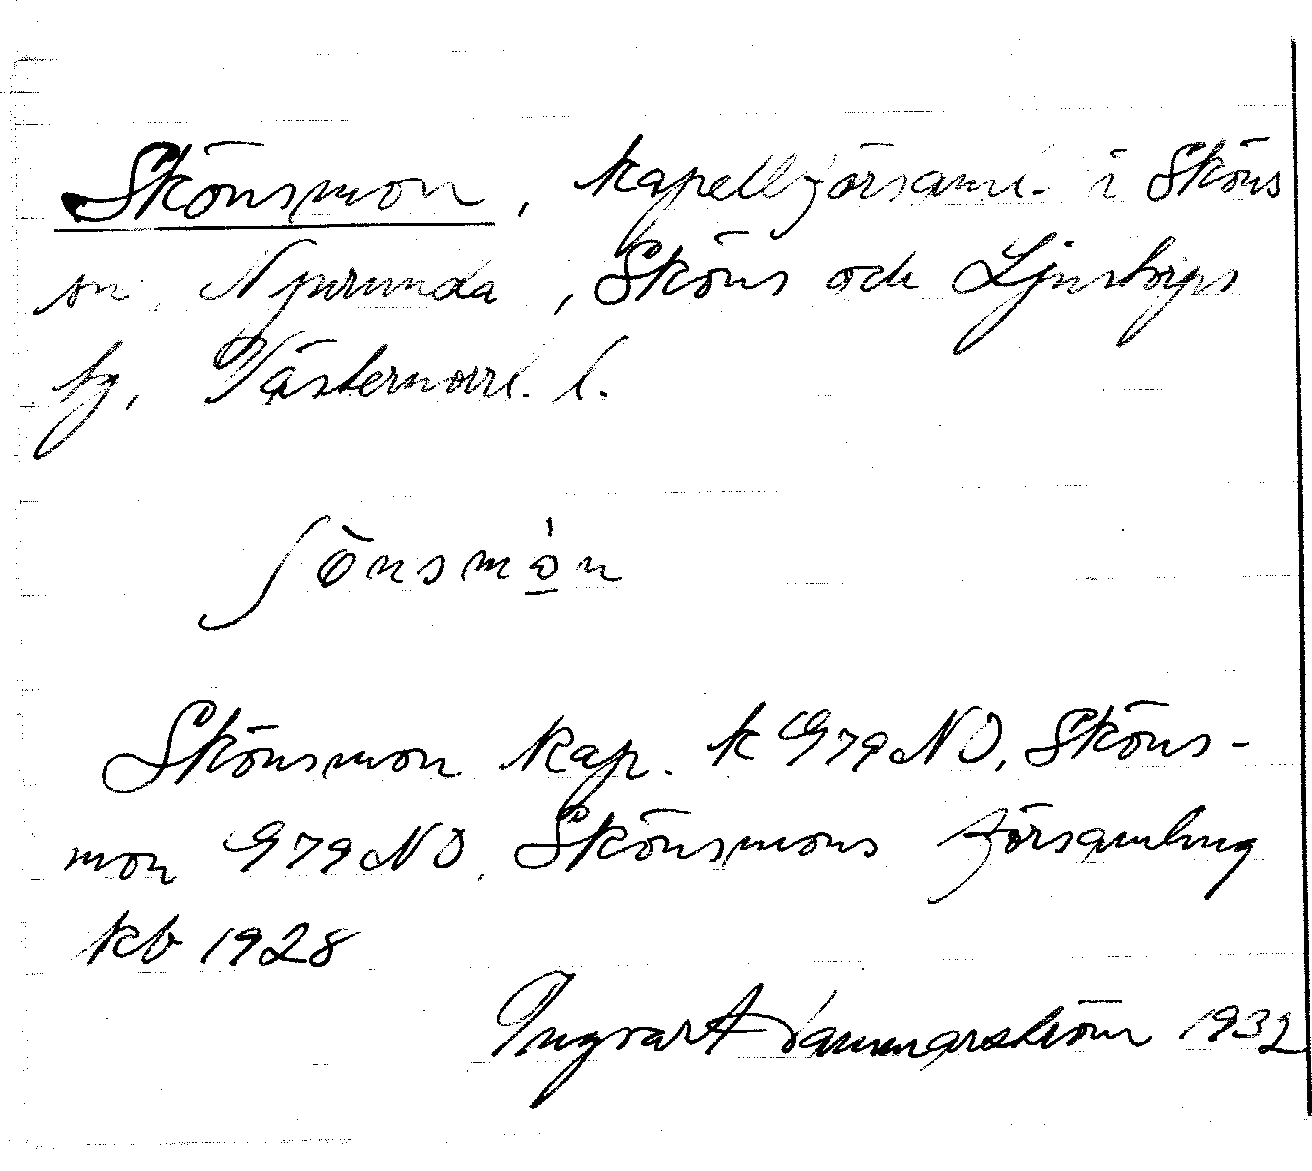 Skönsmon, kapellförsaml. i Sköns
sn, Njurunda, Sköns och Ljustorps
tg, Västernorrl. l.
ʃönsmòn
Skönsmon kap. k G79NO. Sköns-
mon G79NO. Skönsmons församling
kb 1928
Ingvart
1932